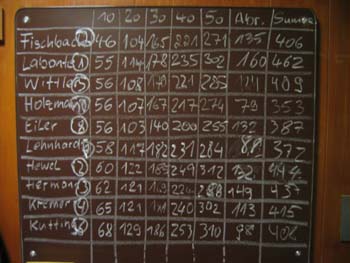 10 20 30 40 50 Abr. Summe
Fischbach 46 104 165 221 271 135 406
Labonte 1 55 114 178 235 302 160 462
Wittler 56 108 221 285 409
Holzmann 56 107 167 217 274 79 353
Eiler 8 56 103 140 200 255 132 387
Lennhardt 58 117 182 231 284 88 372
Hewel 2 60 122 189 249 312 132 444
Hermann 3 62 121 224 288 149 437
Kremer 4 65 121 240 302 113 415
Kutting 6 68 129 186 253 310 98 408